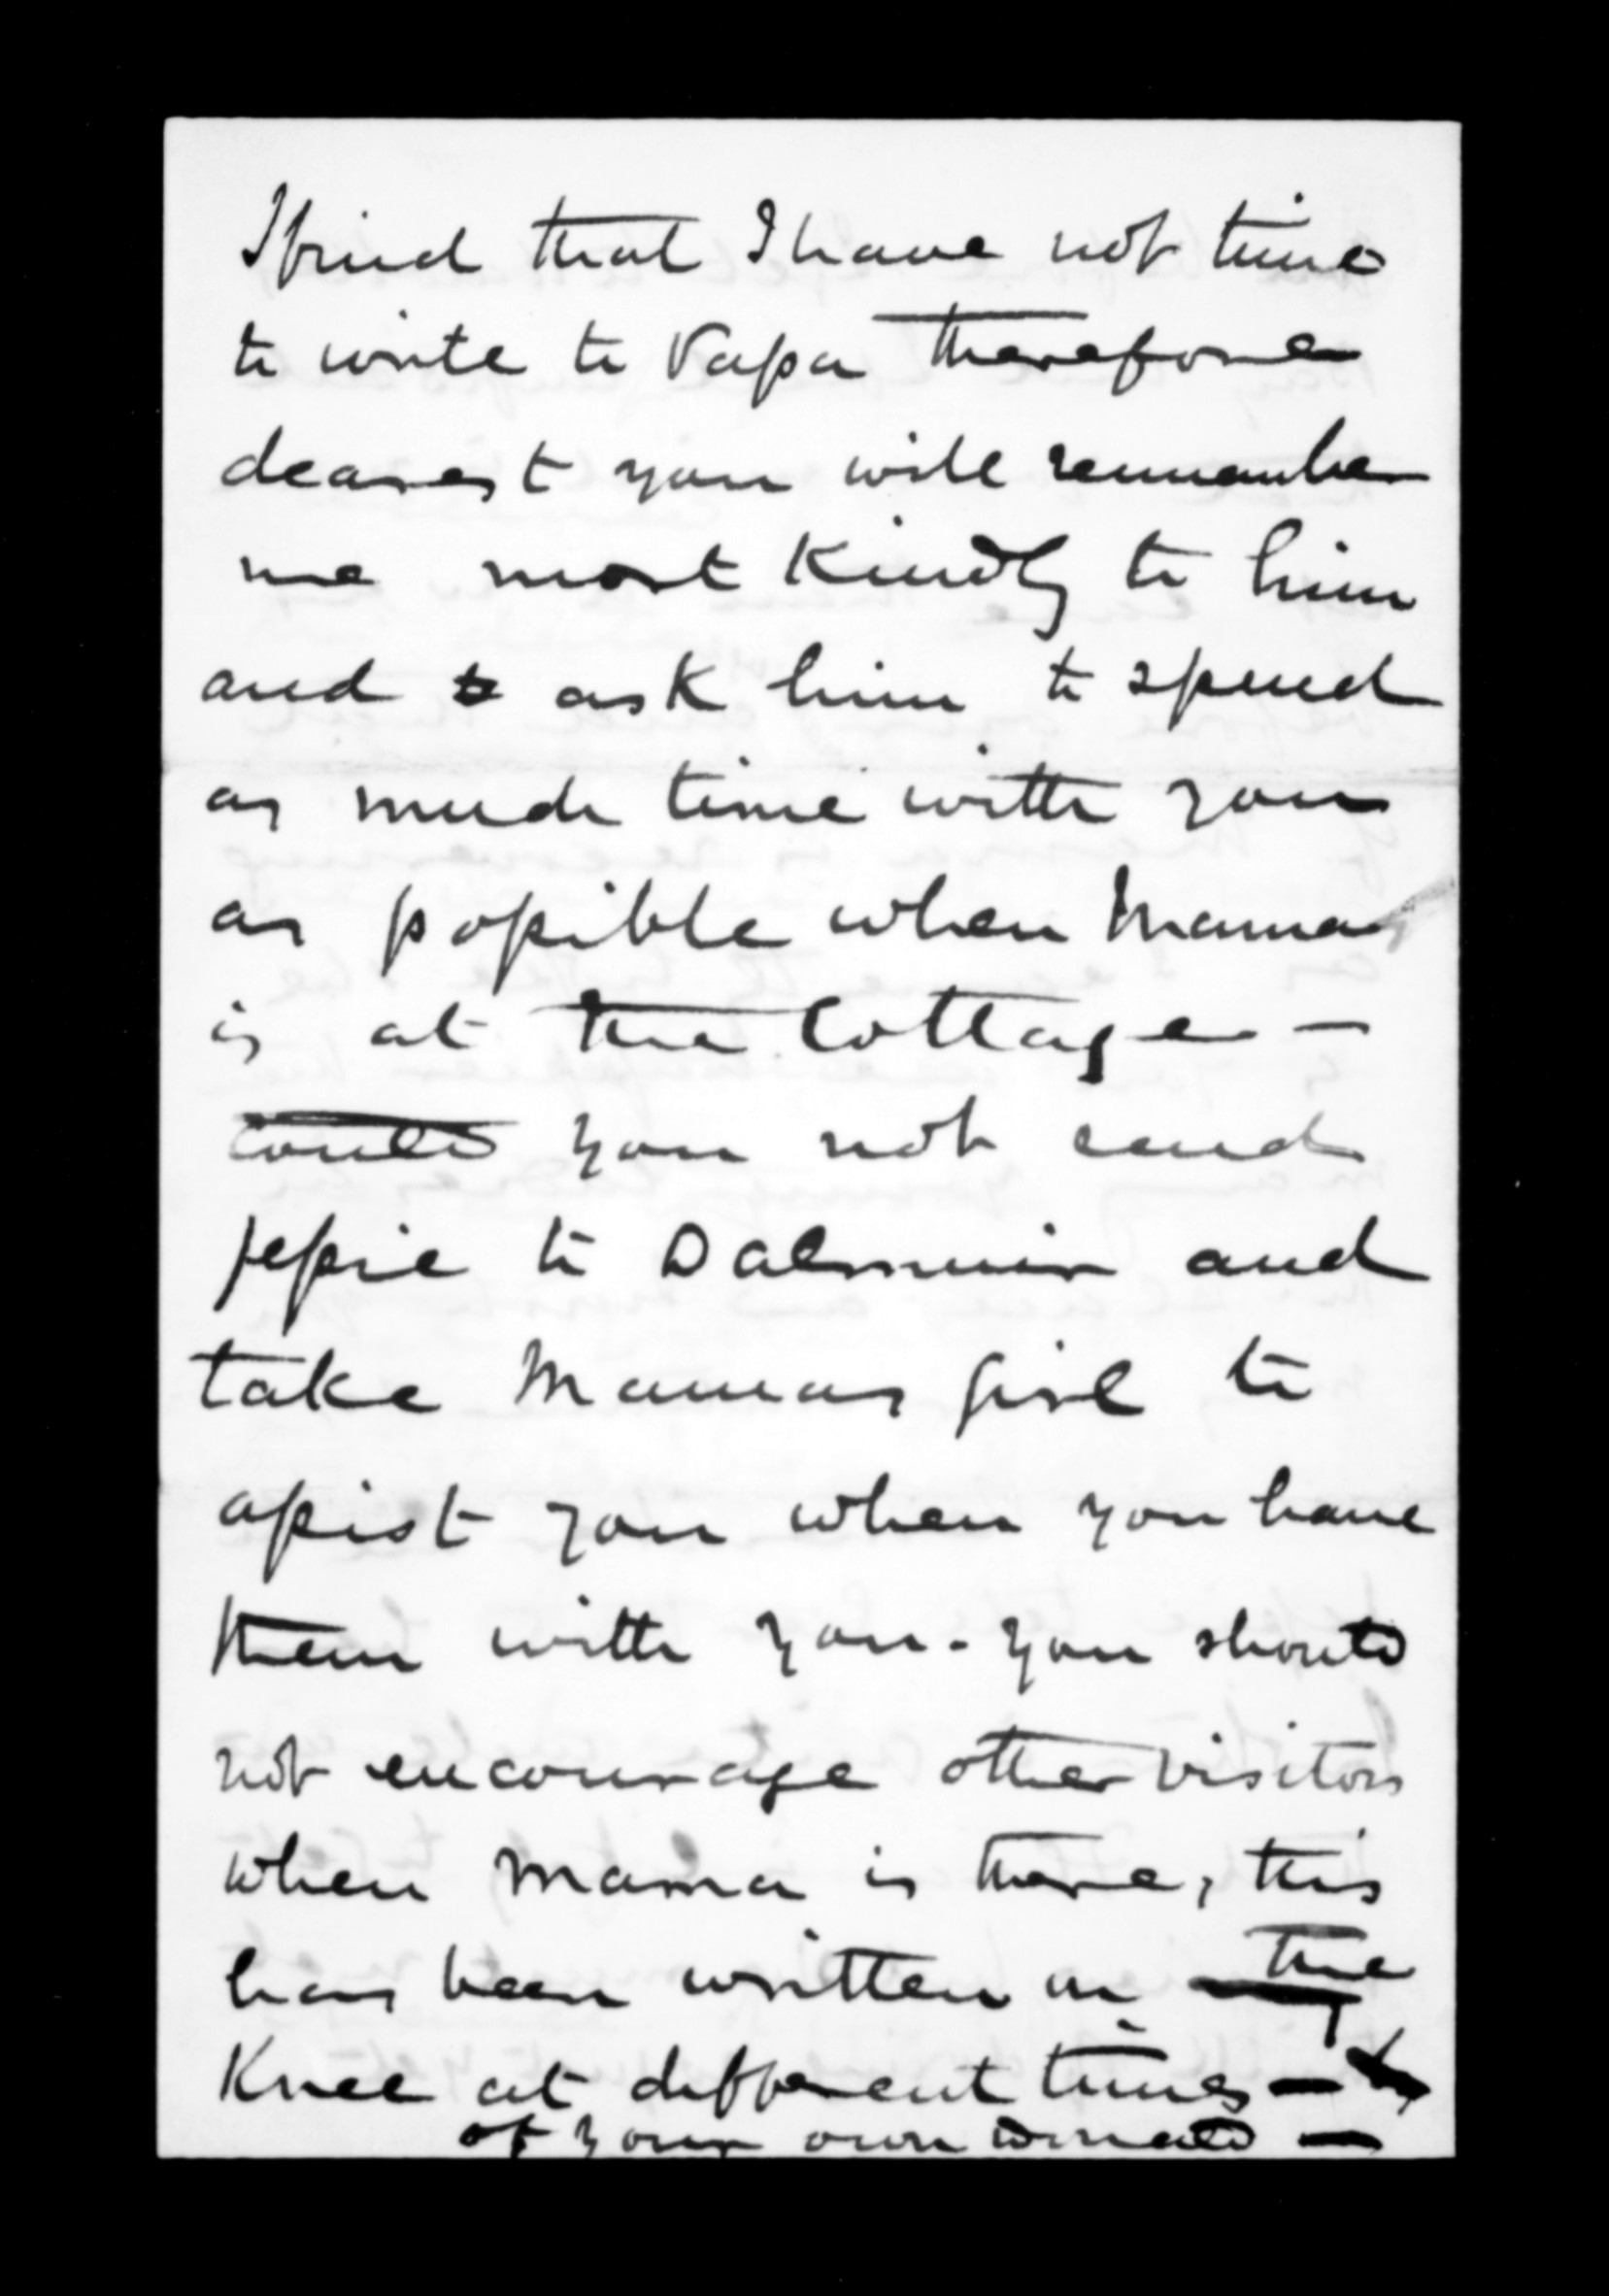 I find that I have not time
to write to Papa therefore
dearest you will remember
me most Kindly to him
and to ask him to spend
as much time with you
as possible when Mama
is at the Cottage —
could you not send
Jessie to Dalmuir and
take Mamas girl to
assist you when you have
them with you - you should
not encourage other visitors
when Mama is there, this
has been written on the
Knee at different times —
of your own